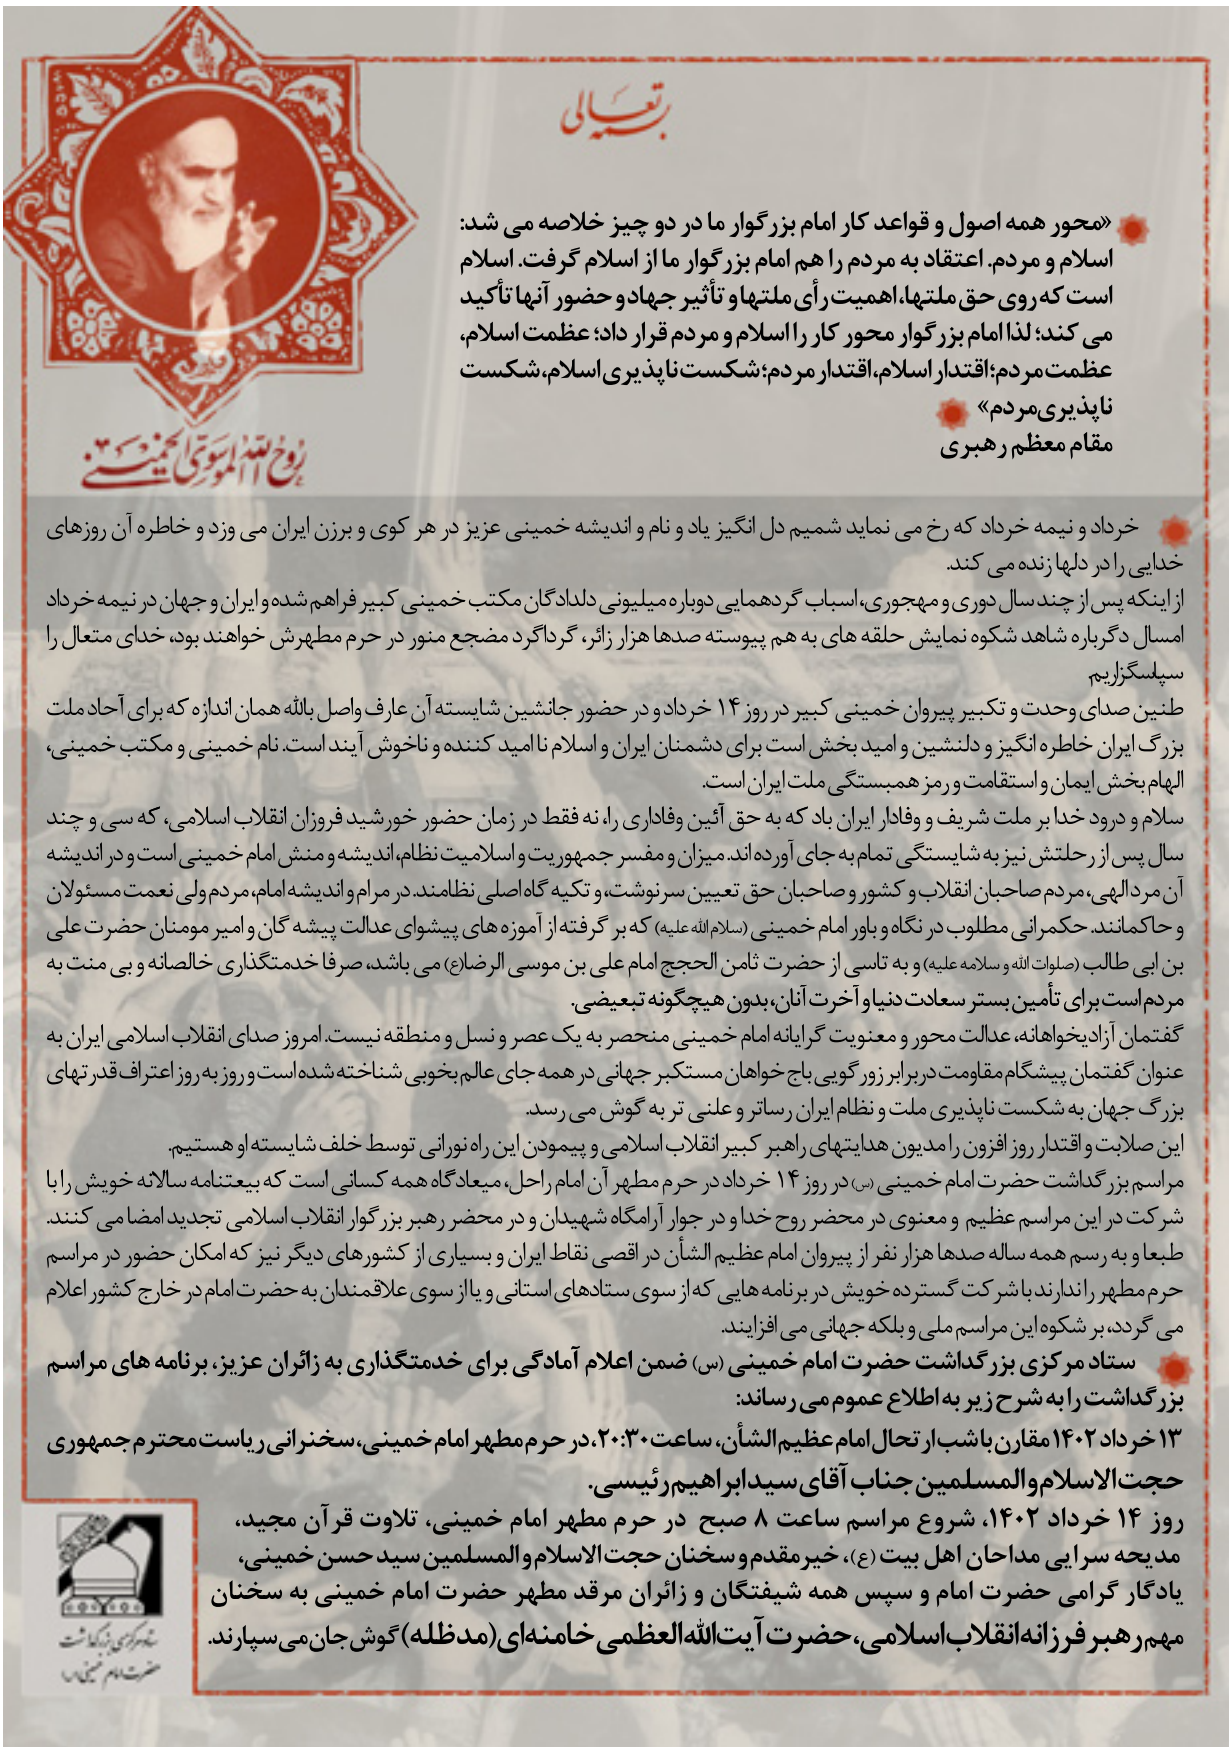 بسمه تعالی
«محور همه اصول و قواعد کار امام بزرگوار ما در دو چیز خلاصه می شد:
اسلام و مردم. اعتقاد به مردم را هم امام بزرگوار ما از اسلام گرفت. اسلام
است که روی حق ملتها، اهمیت رأی ملتها و تأثیر جهاد و حضور آنها تأکید
می کند؛ لذا امام بزرگوار محور کار را اسلام و مردم قرار داد؛ عظمت اسلام،
عظمت مردم؛ اقتدار اسلام، اقتدار مردم؛ شکست ناپذیری اسلام، شکست
ناپذیری مردم»
مقام معظم رهبری
روح الله الموسوی الخمینی
خرداد و نیمه خرداد که رخ می نماید شمیم دل انگیز یاد و نام و اندیشه خمینی عزیز در هر کوی و برزن ایران می وزد و خاطره آن روزهای
خدایی را در دلها زنده می کند.
از اینکه پس از چند سال دوری و مهجوری، اسباب گردهمایی دوباره میلیونی دلدادگان مکتب خمینی کبیر فراهم شده و ایران و جهان در نیمه خرداد
امسال دگرباره شاهد شکوه نمایش حلقه های به هم پیوسته صدها هزار زائر، گرداگرد مضجع منور در حرم مطهرش خواهند بود، خدای متعال را
سپاسگزاریم.
طنین صدای وحدت و تکبیر پیروان خمینی کبیر در روز ۱۴ خرداد و در حضور جانشین شایسته آن عارف واصل بالله همان اندازه که برای آحاد ملت
بزرگ ایران خاطره انگیز و دلنشین و امید بخش است برای دشمنان ایران و اسلام نا امید کننده و ناخوش آیند است. نام خمینی و مکتب خمینی،
الهام بخش ایمان و استقامت و رمز همبستگی ملت ایران است.
سلام و درود خدا بر ملت شریف و وفادار ایران باد که به حق آئین وفاداری را، نه فقط در زمان حضور خورشید فروزان انقلاب اسلامی، که سی و چند
سال پس از رحلتش نیز به شایستگی تمام به جای آورده اند. میزان و مفسر جمهوریت و اسلامیت نظام، اندیشه و منش امام خمینی است و در اندیشه
آن مرد الهی، مردم صاحبان انقلاب و کشور و صاحبان حق تعیین سرنوشت، و تکیه گاه اصلی نظامند. در مرام و اندیشه امام، مردم ولی نعمت مسئولان
و حاکمانند. حکمرانی مطلوب در نگاه و باور امام خمینی (سلام الله علیه) که بر گرفته از آموزه های پیشوای عدالت پیشه گان و امیر مومنان حضرت علی
بن ابی طالب (صلوات الله و سلامه علیه) و به تاسی از حضرت ثامن الحجج امام علی بن موسی الرضا(ع) می باشد، صرفا خدمتگذاری خالصانه و بی منت به
مردم است برای تأمین بستر سعادت دنیا و آخرت آنان، بدون هیچگونه تبعیضی.
گفتمان آزادیخواهانه، عدالت محور و معنویت گرایانه امام خمینی منحصر به یک عصر و نسل و منطقه نیست. امروز صدای انقلاب اسلامی ایران به
عنوان گفتمان پیشگام مقاومت در برابر زور گویی باج خواهان مستکبر جهانی در همه جای عالم بخوبی شناخته شده است و روز به روز اعتراف قدرتهای
بزرگ جهان به شکست ناپذیری ملت و نظام ایران رساتر و علنی تر به گوش می رسد.
این صلابت و اقتدار روز افزون را مدیون هدایتهای راهبر کبیر انقلاب اسلامی و پیمودن این راه نورانی توسط خلف شایسته او هستیم.
مراسم بزرگداشت حضرت امام خمینی (س) در روز ۱۴ خرداد در حرم مطهر آن امام راحل، میعادگاه همه کسانی است که بیعتنامه سالانه خویش را با
شرکت در این مراسم عظیم و معنوی در محضر روح خدا و در جوار آرامگاه شهیدان و در محضر رهبر بزرگوار انقلاب اسلامی تجدید امضا می کنند.
طبعا و به رسم همه ساله صدها هزار نفر از پیروان امام عظیم الشأن در اقصی نقاط ایران و بسیاری از کشورهای دیگر نیز که امکان حضور در مراسم
حرم مطهر را ندارند با شرکت گسترده خویش در برنامه هایی که از سوی ستادهای استانی و یا از سوی علاقمندان به حضرت امام در خارج کشور اعلام
می گردد، بر شکوه این مراسم ملی و بلکه جهانی می افزایند.
ستاد مرکزی بزرگداشت حضرت امام خمینی (س) ضمن اعلام آمادگی برای خدمتگذاری به زائران عزیز، برنامه های مراسم
بزرگداشت را به شرح زیر به اطلاع عموم می رساند:
۱۳ خرداد ۱۴۰۲ مقارن با شب ارتحال امام عظیم الشأن، ساعت ۲۰:۳۰، در حرم مطهر امام خمینی، سخنرانی ریاست محترم جمهوری
حجت الاسلام والمسلمین جناب آقای سید ابراهیم رئیسی.
روز ۱۴ خرداد ۱۴۰۲، شروع مراسم ساعت ۸ صبح در حرم مطهر امام خمینی، تلاوت قرآن مجید،
مدیحه سرایی مداحان اهل بیت (ع)، خیر مقدم و سخنان حجت الاسلام والمسلمین سید حسن خمینی،
یادگار گرامی حضرت امام و سپس همه شیفتگان و زائران مرقد مطهر حضرت امام خمینی به سخنان
مهم رهبر فرزانه انقلاب اسلامی، حضرت آیت الله العظمی خامنه‌ای (مدظله) گوش جان می سپارند.
ستاد مرکزی بزرگداشت
حضرت امام خمینی (س)